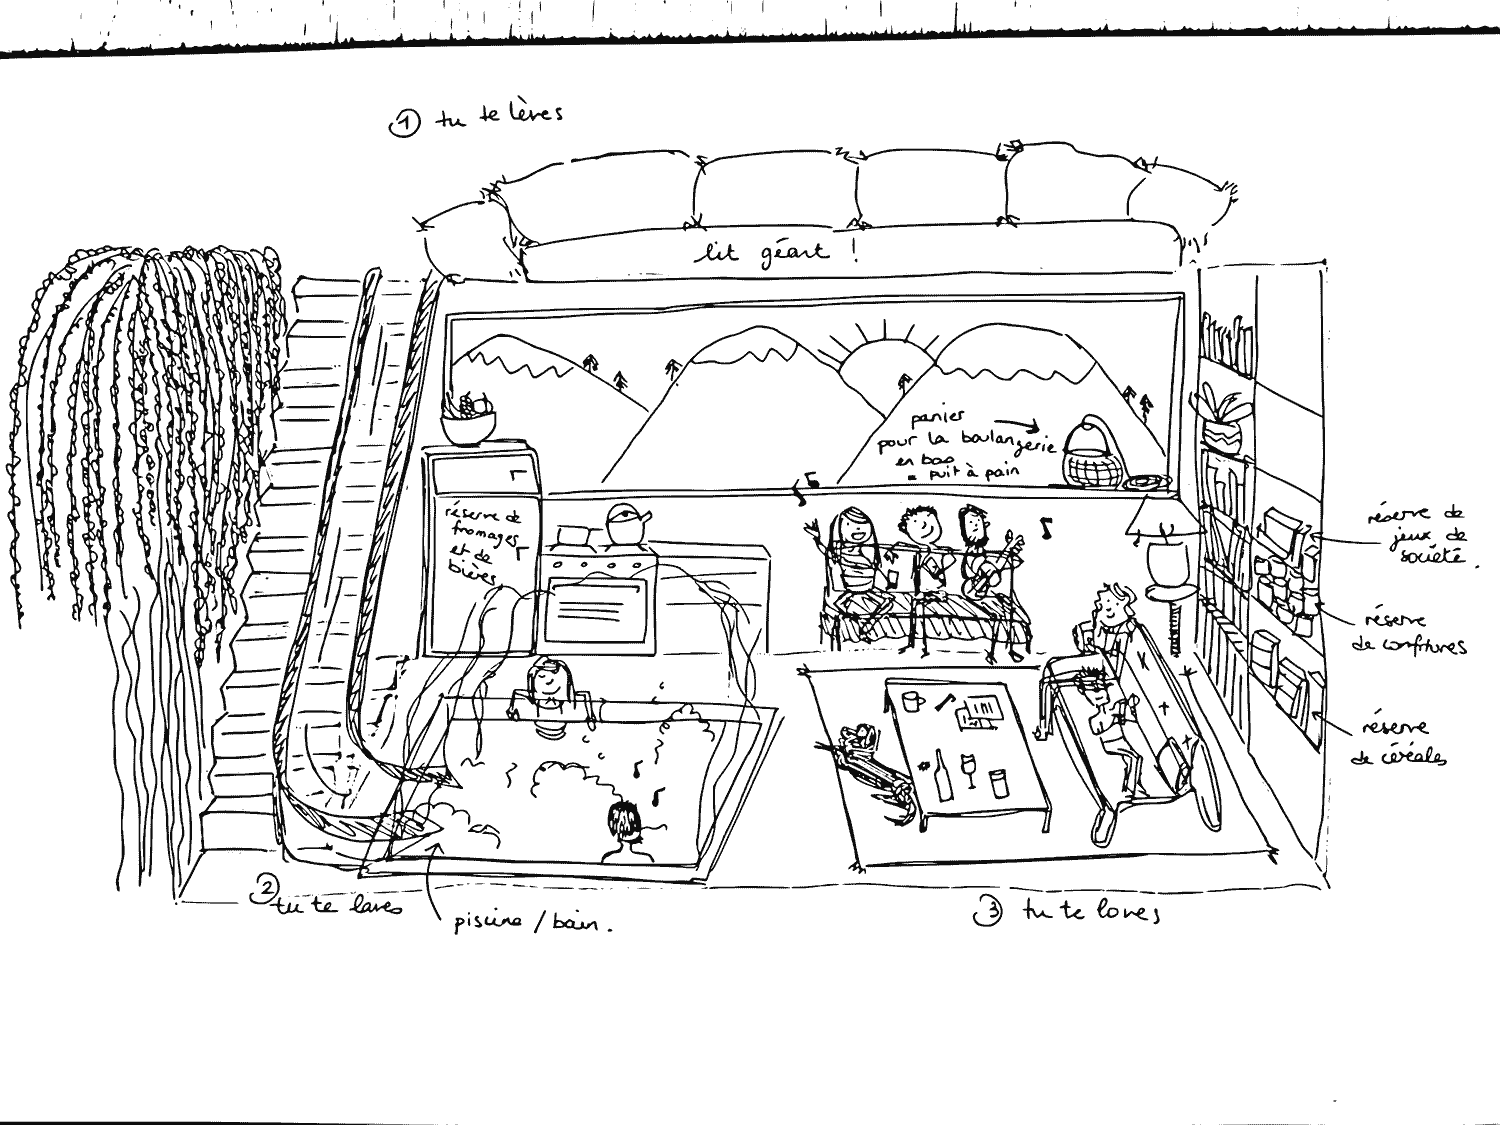 1 tu te lèves
lit géant !
panier
pour la boulangerie
en bas
= puit à pain
réserve de
fromages
et de
bières
réserve de
jeux de
société.
réserve
de confitures
réserve
de céréales
2 tu te laves
piscine / bain.
3 tu te loves